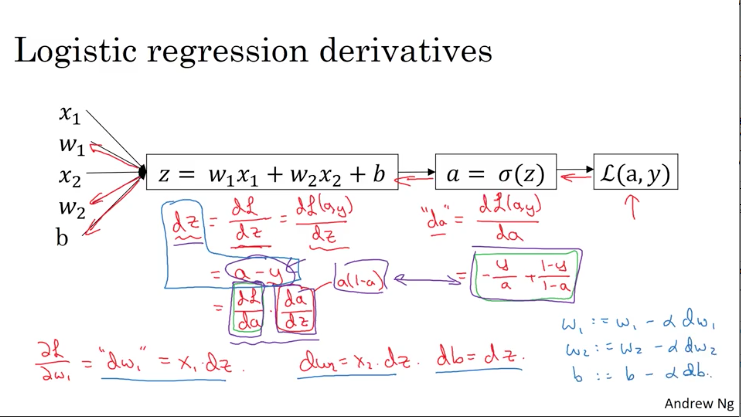 Logistic regression derivatives
x₁
w₁
x₂
w₂
b
z = w₁x₁ + w₂x₂ + b
a = σ(z)
ℒ(a, y)
dz = dℒ/dz = dℒ(a,y)/dz
"da" = dℒ(a,y)/da
= a - y
a(1-a)
= -y/a + (1-y)/(1-a)
= dℒ/da · da/dz
∂ℒ/∂w₁ = "dw₁" = x₁·dz.
dw₂ = x₂·dz.
db = dz.
w₁ := w₁ - α dw₁
w₂ := w₂ - α dw₂
b := b - α db.
Andrew Ng